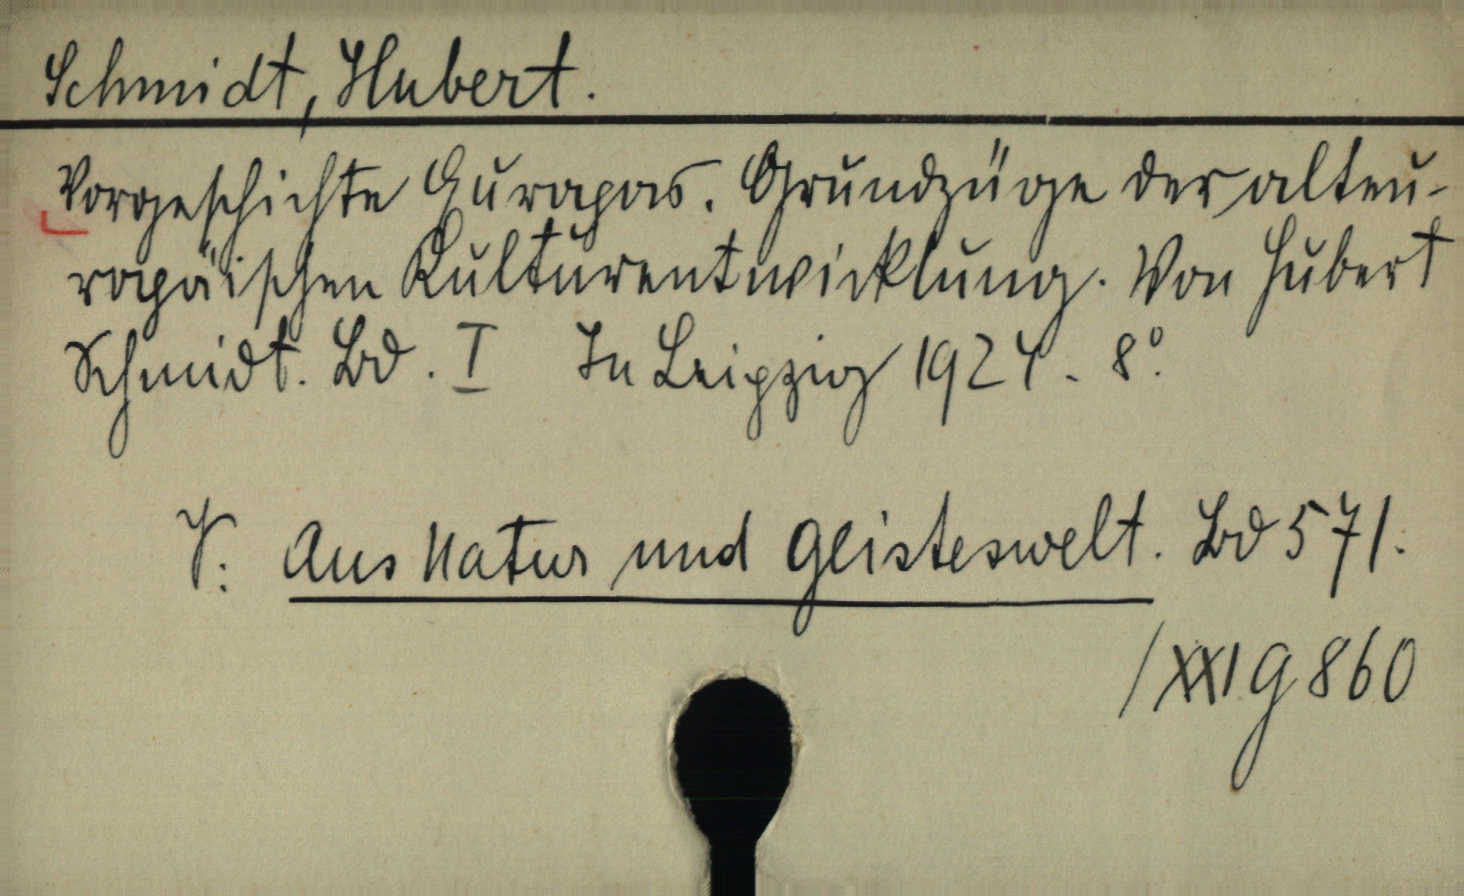 Schmidt, Hubert.
Vorgeschichte Europas. Grundzüge der alteu-
ropäischen Kulturentwicklung. Von Hubert
Schmidt. Bd. I In Leipzig 1924. 8°.
V: Aus Natur und Geisteswelt. Bd 571.
/XXI G 860